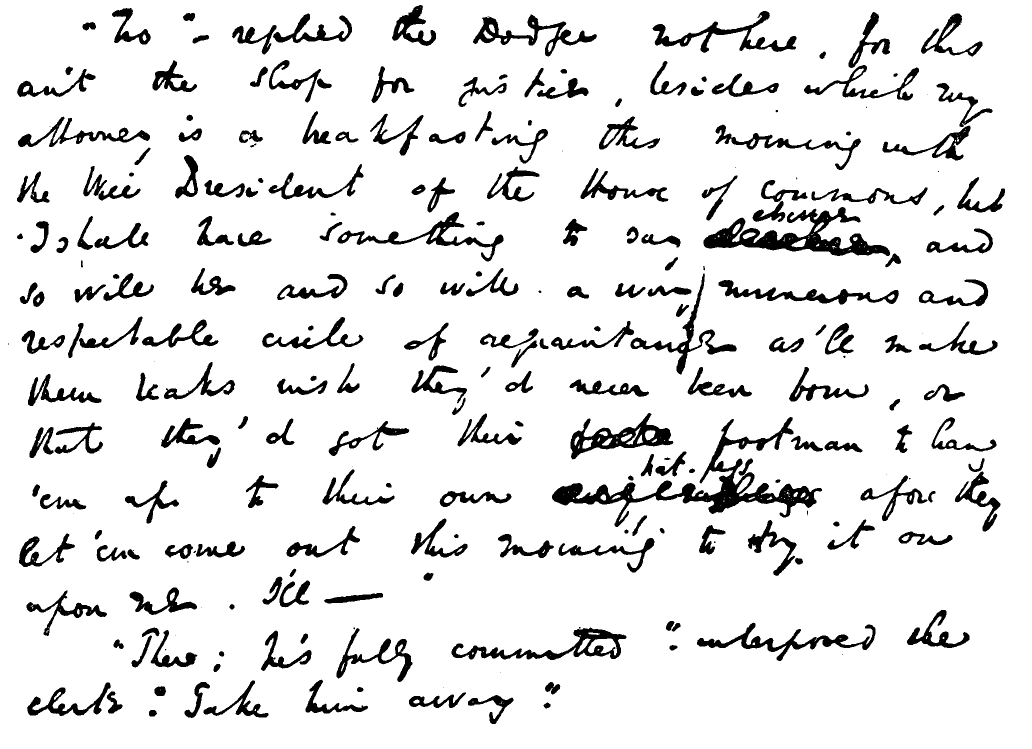 "No" - replied the Dodger not here, for this
ain't the shop for justice, besides which my
attorney is a breakfasting this morning with
the Vice President of the House of commons, but
I shall have something to say elsewhere, and
so will he and so will a wery numerous and
respectable circle of acquaintance as'll make
them beaks wish they'd never been born, or
that they'd got their footman to hang
'em up to their own hat-pegs afore they
let 'em come out this morning to try it on
upon me. I'll —"
"There; he's fully committed": interposed the
clerk: "Take him away."